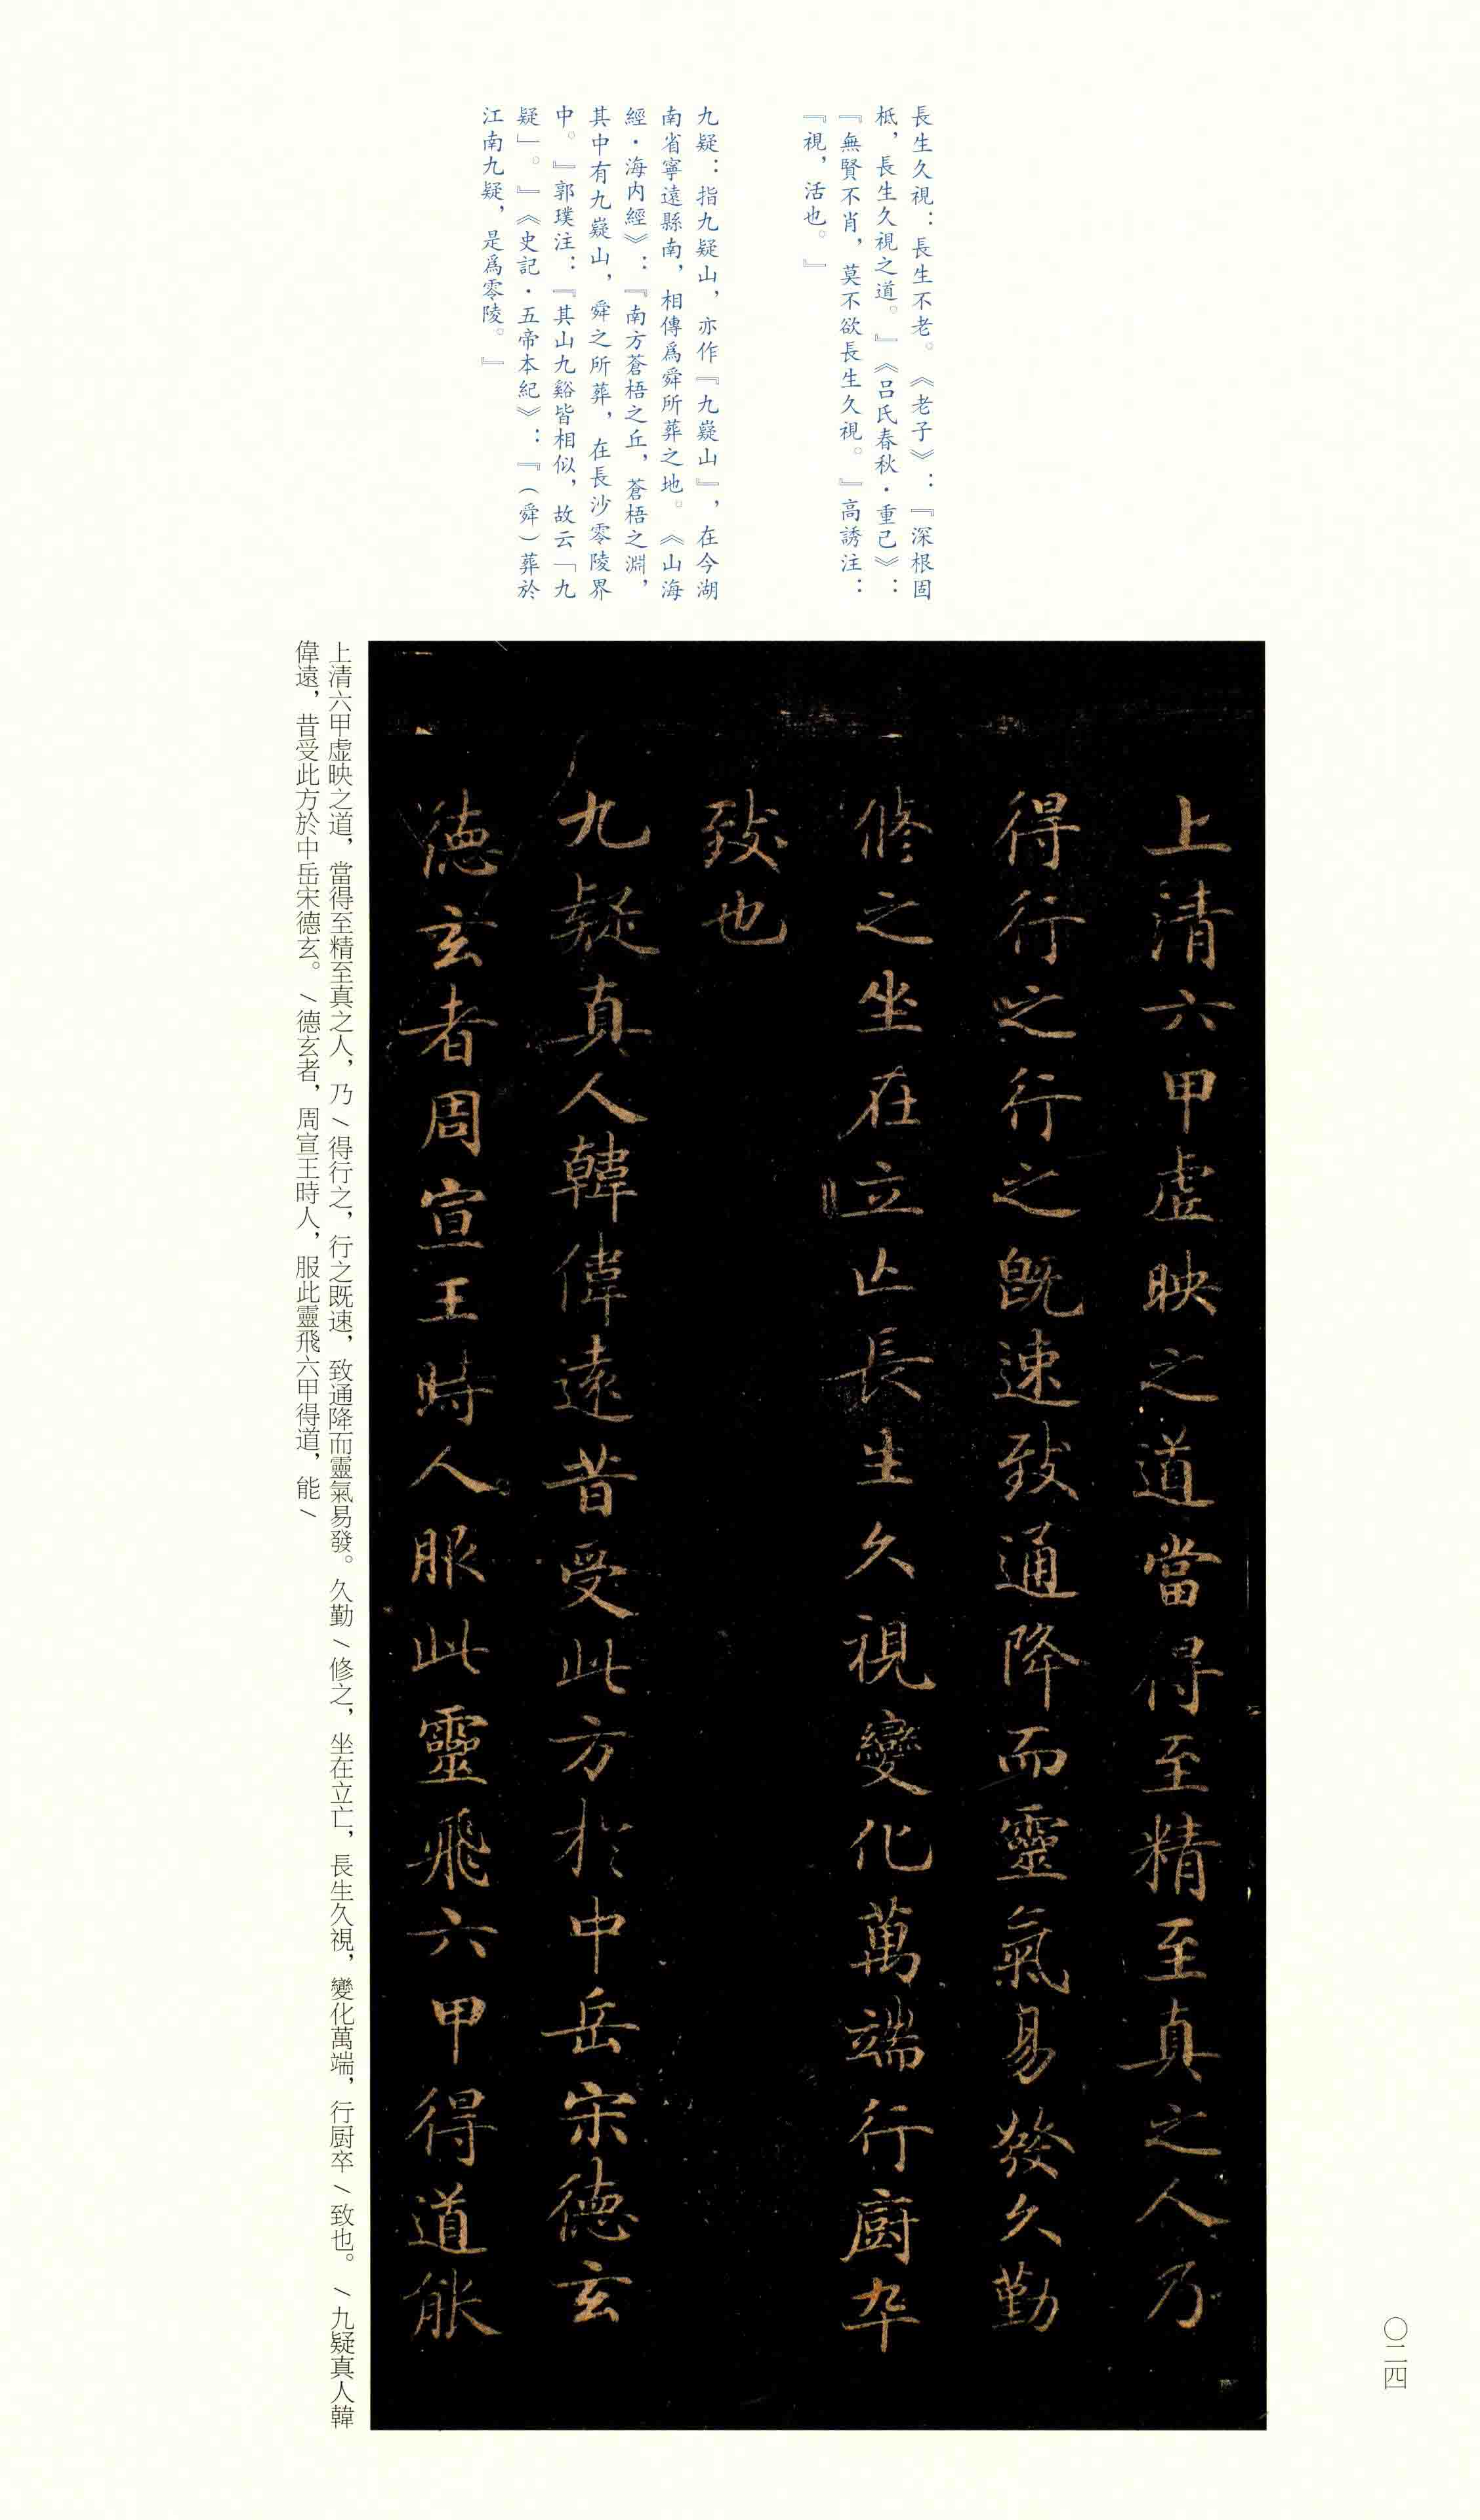 長生久視：長生不老。《老子》：『深根固
柢，長生久視之道。』《吕氏春秋·重己》：
『無賢不肖，莫不欲長生久視。』高誘注：
『視，活也。』
九疑：指九疑山，亦作『九嶷山』，在今湖
南省寧遠縣南，相傳爲舜所葬之地。《山海
經·海内經》：『南方蒼梧之丘，蒼梧之淵，
其中有九嶷山，舜之所葬，在長沙零陵界
中。』郭璞注：『其山九谿皆相似，故云「九
疑」。』《史記·五帝本紀》：『（舜）葬於
江南九疑，是爲零陵。』
上清六甲虚映之道當得至精至真之人乃
得行之行之既速致通降而靈氣易發久勤
修之坐在立亡長生久視變化萬端行厨卒
致也
九疑真人韓偉遠昔受此方於中岳宋德玄
德玄者周宣王時人服此靈飛六甲得道能
上清六甲虚映之道，當得至精至真之人，乃\得行之，行之既速，致通降而靈氣易發。久勤\修之，坐在立亡，長生久視，變化萬端，行厨卒\致也。\九疑真人韓
偉遠，昔受此方於中岳宋德玄。\德玄者，周宣王時人，服此靈飛六甲得道，能\
〇二四